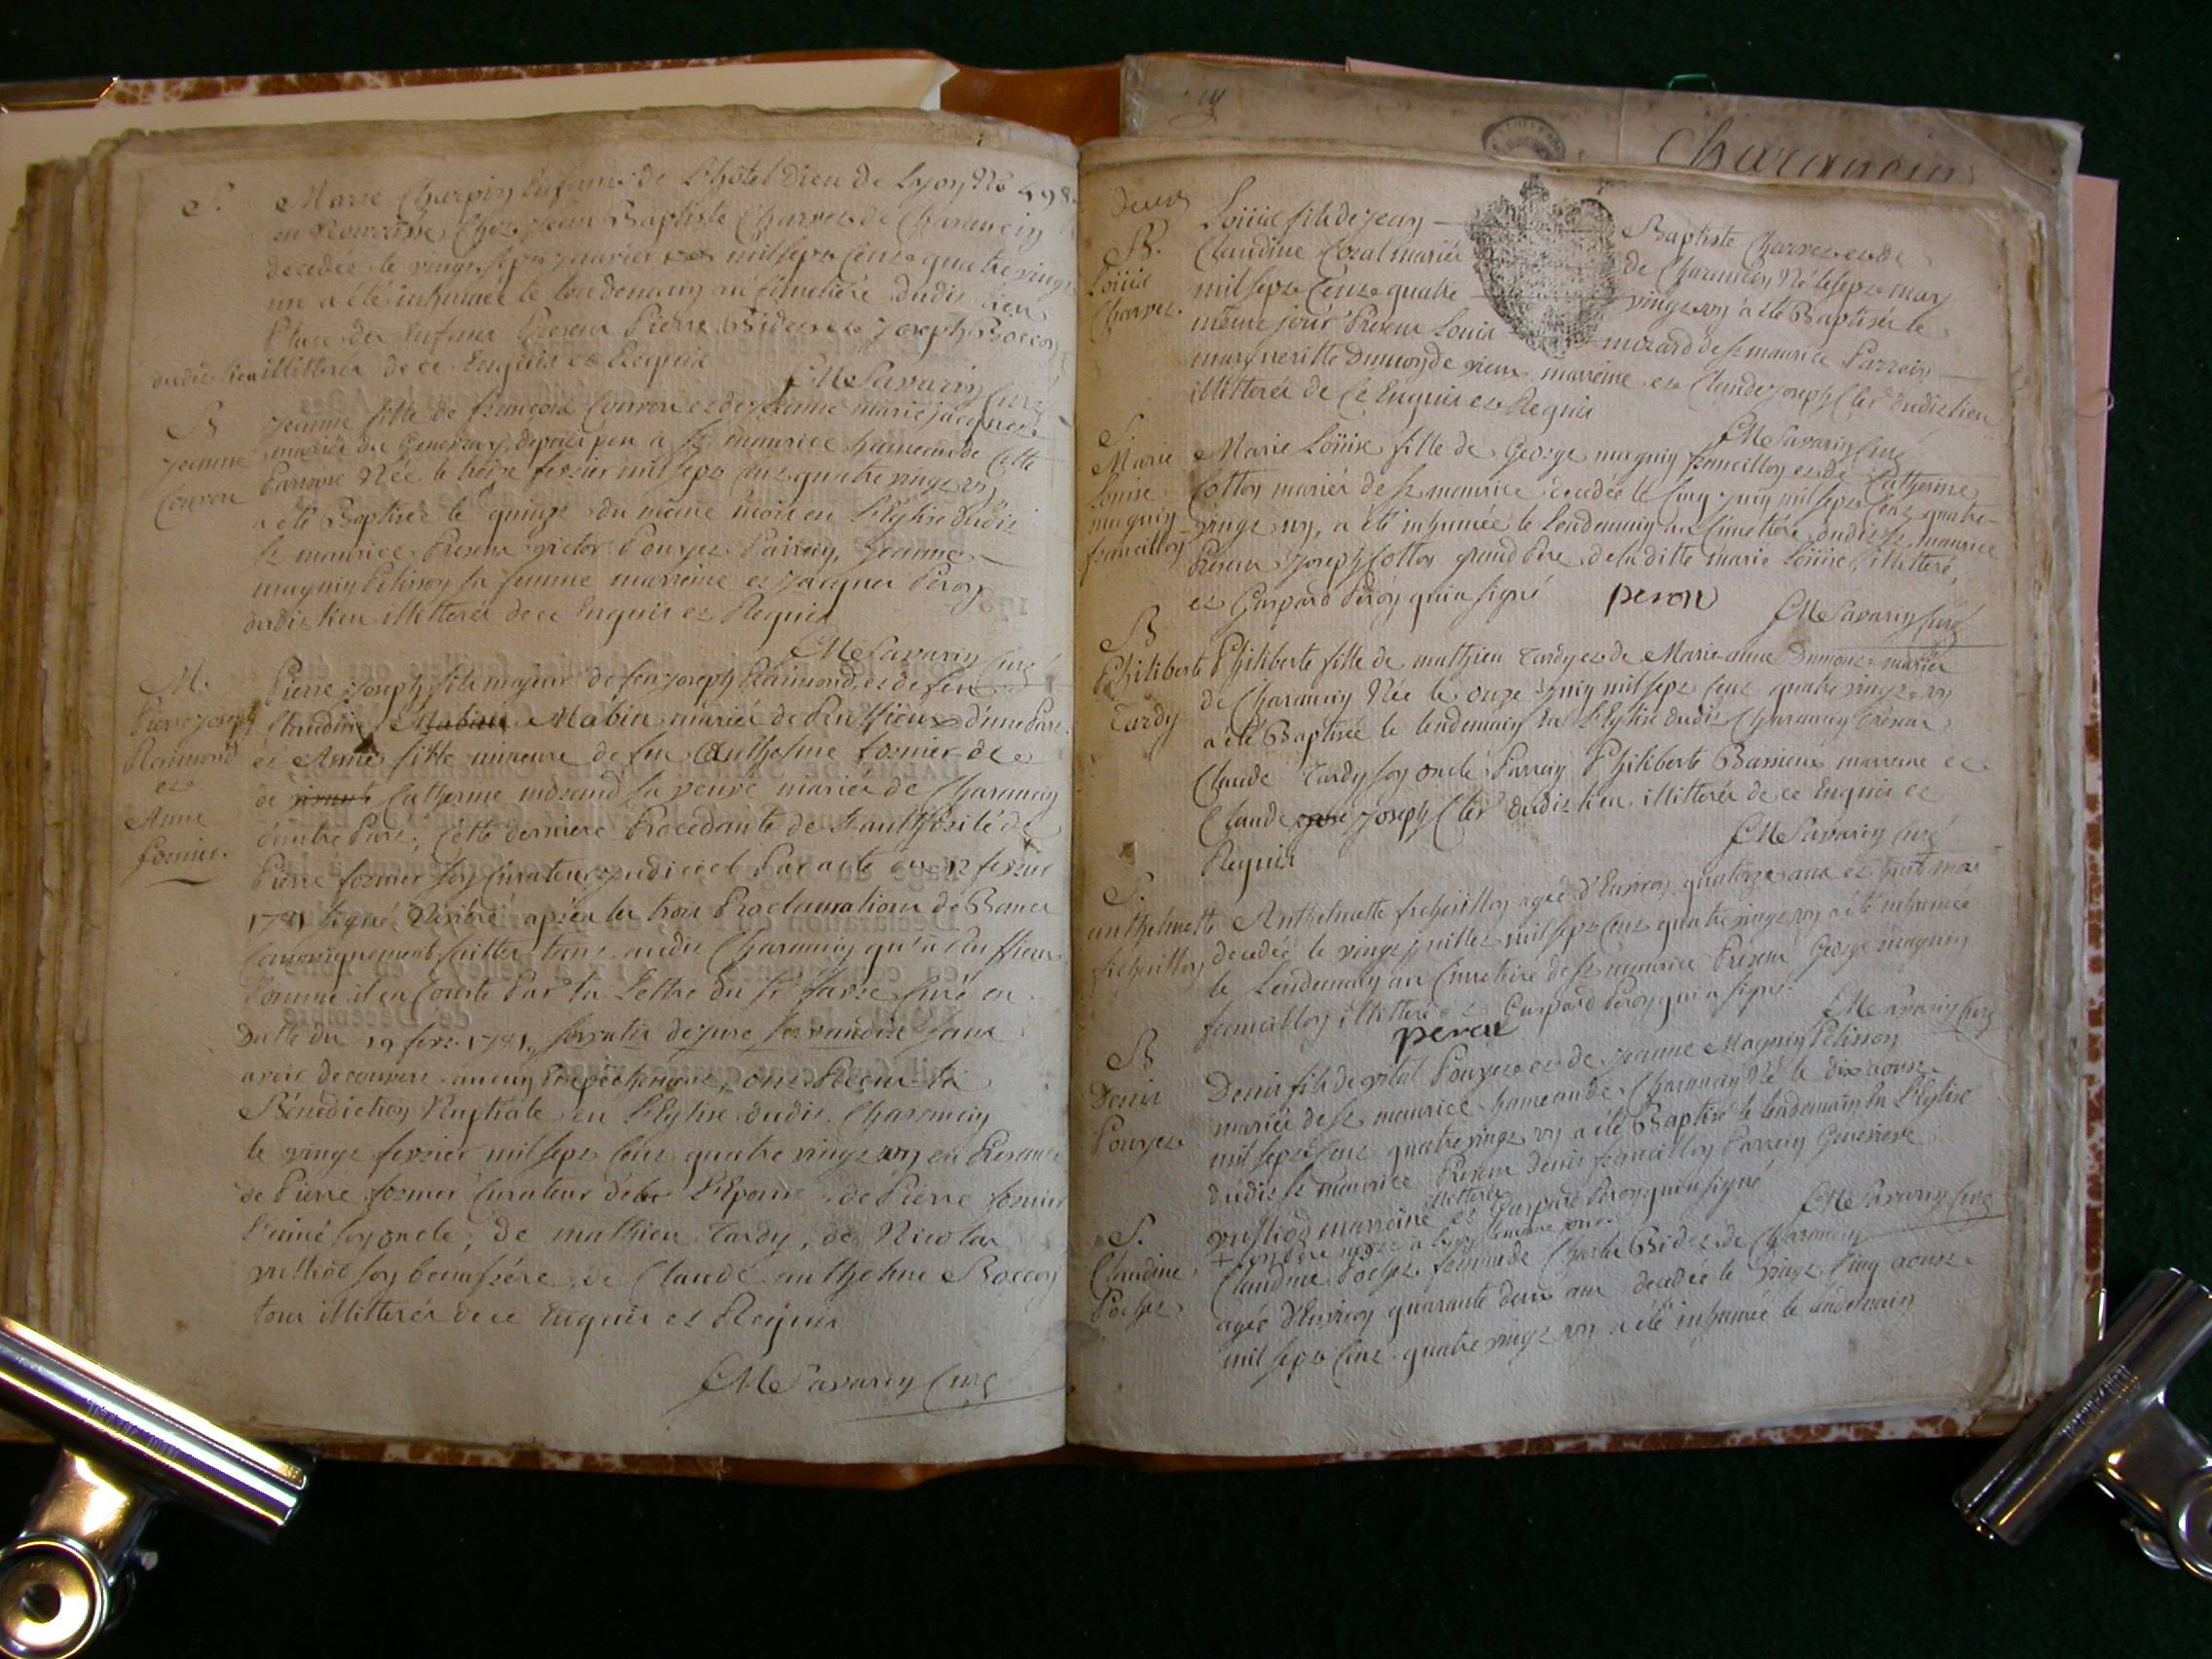 S. Marie Charpin Enfans de L'hôtel Dieu de Lyon No 498
en Nourisse Chez Jean Baptiste Charvet de Charancin
decedée le vingt sept janvier mil sept cent quatre vingt
un a été inhumée le lendemain au Cimetière dudit lieu
Place des Enfans Presens Pierre Bidet et Joseph Boccon
dudit lieu illitterés de ce Enquis et Requis
CM Savarin Curé
B
Jeanne
Couron
Jeanne fille de françois Couron et de jeanne marie jacquet
mariés du Genevray, depuis peu a St maurice hameau de Cette
Parroisse Née le treize fevrier mil sept cent quatre vingt un
a été Baptisée le quinze du même mois en L'Eglise dudit
St maurice Presens victor Pouget Parrain, Jeanne
magnin Pelisson sa femme marreine et jacques Peron
dudit lieu illitterés de ce Enquis et Requis
CM Savarin Curé
M.
Pierre joseph
Raimond
et
Anne
fornier.
Pierre joseph fils majeur de feu joseph Raimond, et de feu
Claudine Mabin mariés de Ruffieux d'une Part
et Anne fille mineure de feu Anthelme fornier de
de Catherine morand sa veuve mariés de Charancin
d'autre Part; Cette derniere Procedante de L'authorité de
Pierre fornier son Curateur judiciel Par acte du 12 fevrier
1781 signé, après les trois Proclamations de Bancs
Canoniquement faittes tant audit Charancin qu'à Ruffieux
Comme il en Conste Par la Lettre du Sr Curé en
Datte du 19 fevr. 1781, servatis de jure servandis sans
avoir decouvert aucun Empechement, ont Recu la
Bénédiction Nuptiale en L'Eglise dudit Charancin
le vingt fevrier mil sept cent quatre vingt un en Presance
de Pierre fornier Curateur de L'Epouse de Pierre fornier
L'ainé son oncle, de mathieu Tardy, de Nicolas
vulliod son beaufrère, de Claude anthelme Boccon
tous illitterés de ce Enquis et Requis
CM Savarin Curé
Charancin
deux
B.
Louis
Charvet
Louis fils de jean Baptiste Charvet et de
Claudine Cozal mariés de Charancin Né le sept may
mil sept Cent quatre vingt un a été Baptisé le
même jour Presens Louis mozard de St maurice Parrein
margueritte Dumond de vieux marreine et Claude joseph Cler dudit lieu
illitterés de Ce Enquis et Requis
CM Savarin Curé
S
Marie
Louise
magnin
francillon
Marie Louise fille de George magnin francillon et de Catherine
Cotton mariés de St maurice decedée le Cinq juin mil sept Cent quatre
vingt un, a été inhumée le Lendemain au Cimetière dudit St maurice
Presens joseph Cotton grand Père de la ditte marie Louise, illitteré,
et Gaspard Peron qui a signé peron
CM Savarin Curé
B
Philiberte
Tardy
Philiberte fille de mathieu Tardy et de Marie-anne Dumont mariés
de Charancin Née le onze juin mil sept cent quatre vingt un
a été Baptisée le lendemain En L'Eglise dudit Charancin Presens
Claude Tardy son oncle Parrain Philiberte Bassieux marreine et
Claude joseph Cler dudit lieu illitterés de ce Enquis et
Requis
CM Savarin Curé
S.
anthelmette
Anthelmette agée d'Environ quatorze ans et huit moi
decedée le vingt juillet mil sept Cent quatre vingt un a été inhumée
le Lendemain au Cimetière de St maurice Presens George magnin
francillon illitteré et Gaspard Peron qui a signé.
peron CM Savarin Curé
B
Denis
Pouget
Denis fils de vital Pouget et de jeanne Magnin Pelisson
mariés de St maurice hameau de Charancin Né le dix aoust
mil sept Cent quatre vingt un a été Baptisé le lendemain En L'Eglise
dudit St maurice Presens Denis francillon Parrein Genevieve
vulliod marreine illitterés et Gaspard Peron qui a signé
CM Savarin Curé
S.
Claudine
Pochet
Claudine Pochet femme de Charles Bidet de Charancin
agée d'Environ quarante deux ans decedée le vingt Cinq aoust
mil sept Cent quatre vingt un a été inhumée le lendemain